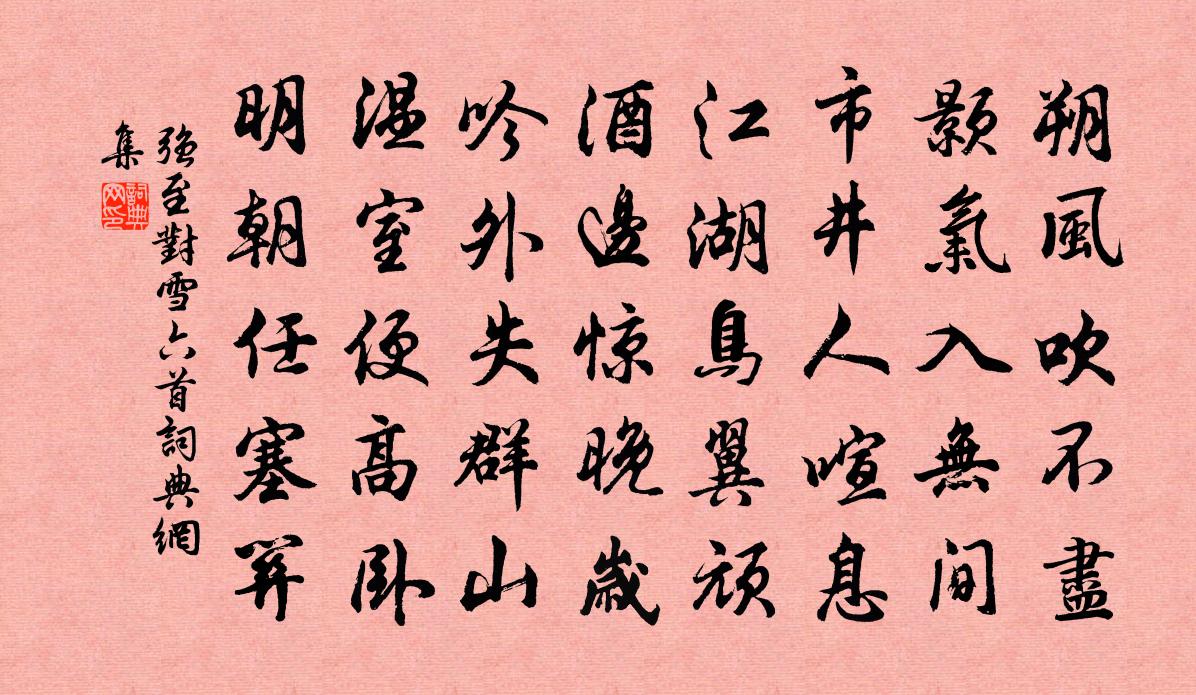 朔風吹不盡
顥氣入無間
市井人喧息
江湖鳥翼頑
酒邊惊晚歲
吟外失群山
温室便高卧
明朝任塞關
強至對雪六首詞典網
集
詞典网印